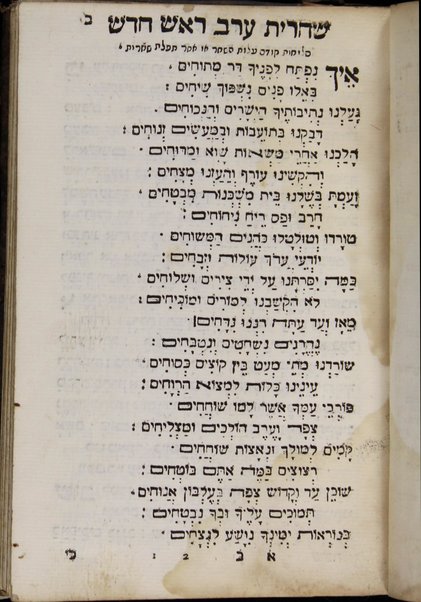 שחרית ערב ראש חדש
ב
סליחות קודם עלות השחר או אחר תפלת שחרית
אֵיךְ נִפְתַּח לְפָנֶיךָ דָּר מְתוּחִים׃
בְּאֵלוּ פָנִים נִשְׁפּוֹךְ שִׂיחִים׃
גָּעַלְנוּ נְתִיבוֹתֶיךָ הַיְשָׁרִים וְהַנְּכוֹחִים׃
דָּבַקְנוּ בְּתוֹעֵבוֹת וּבְמַעֲשִׂים זְנוּחִים׃
הָלַכְנוּ אַחֲרֵי מַשְׂאוֹת שָׁוְא וּמַדּוּחִים׃
וְהִקְשִׁינוּ עוֹרֶף וְהֵעַזְנוּ מְצָחִים׃
זָעַמְתָּ בְּשֶׁלָּנוּ בֵּית מִשְׁכְּנוֹת מִבְטָחִים׃
חָרַב וּפַס רֵיחַ נִיחוֹחִים׃
טוֹרְדוּ וְטוּלְטְלוּ כֹּהֲנִים הַמְּשׁוּחִים׃
יוֹדְעֵי עֵרֶךְ עוֹלוֹת וּזְבָחִים׃
כַּמֶּה יִסַּרְתָּנוּ עַל יְדֵי צִירִים וּשְׁלוּחִים׃
לֹא הִקְשַׁבְנוּ לְמוֹרִים וּמוֹכִיחִים׃
מֵאָז וְעַד עַתָּה הִנְנוּ נִדָּחִים׃
נֶהֱרָגִים נִשְׁחָטִים וְנִטְבָּחִים׃
שׂוֹרַדְנוּ מְתֵי מְעַט בֵּין קוֹצִים כְּסוּחִים׃
עֵינֵינוּ כָּלוֹת לִמְצוֹא הַרְוָחִים׃
פּוֹרְכֵי עַמְּךָ אֲשֶׁר לָמוֹ שׁוֹחֲחִים׃
צֶפֶר וָעֶרֶב הוֹלְכִים וּמַצְלִיחִים׃
קָמִים לְמוּלְךָ וְנֶאֱצוֹת שׂוֹחֲחִים׃
רְצוּצִים בַּמֶּה אַתֶּם בּוֹטְחִים׃
שׁוֹכֵן עַד וְקָדוֹשׁ צְפֵה בְּעֶלְבּוֹן אֲנוּחִים׃
תְּמוּכִים עָלֶיךָ וּבְךָ נִבְטָחִים׃
בְּנוֹרְאוֹת יְמִינְךָ נִוָּשַׁע לִנְצָחִים׃
א ב 2 1 כי